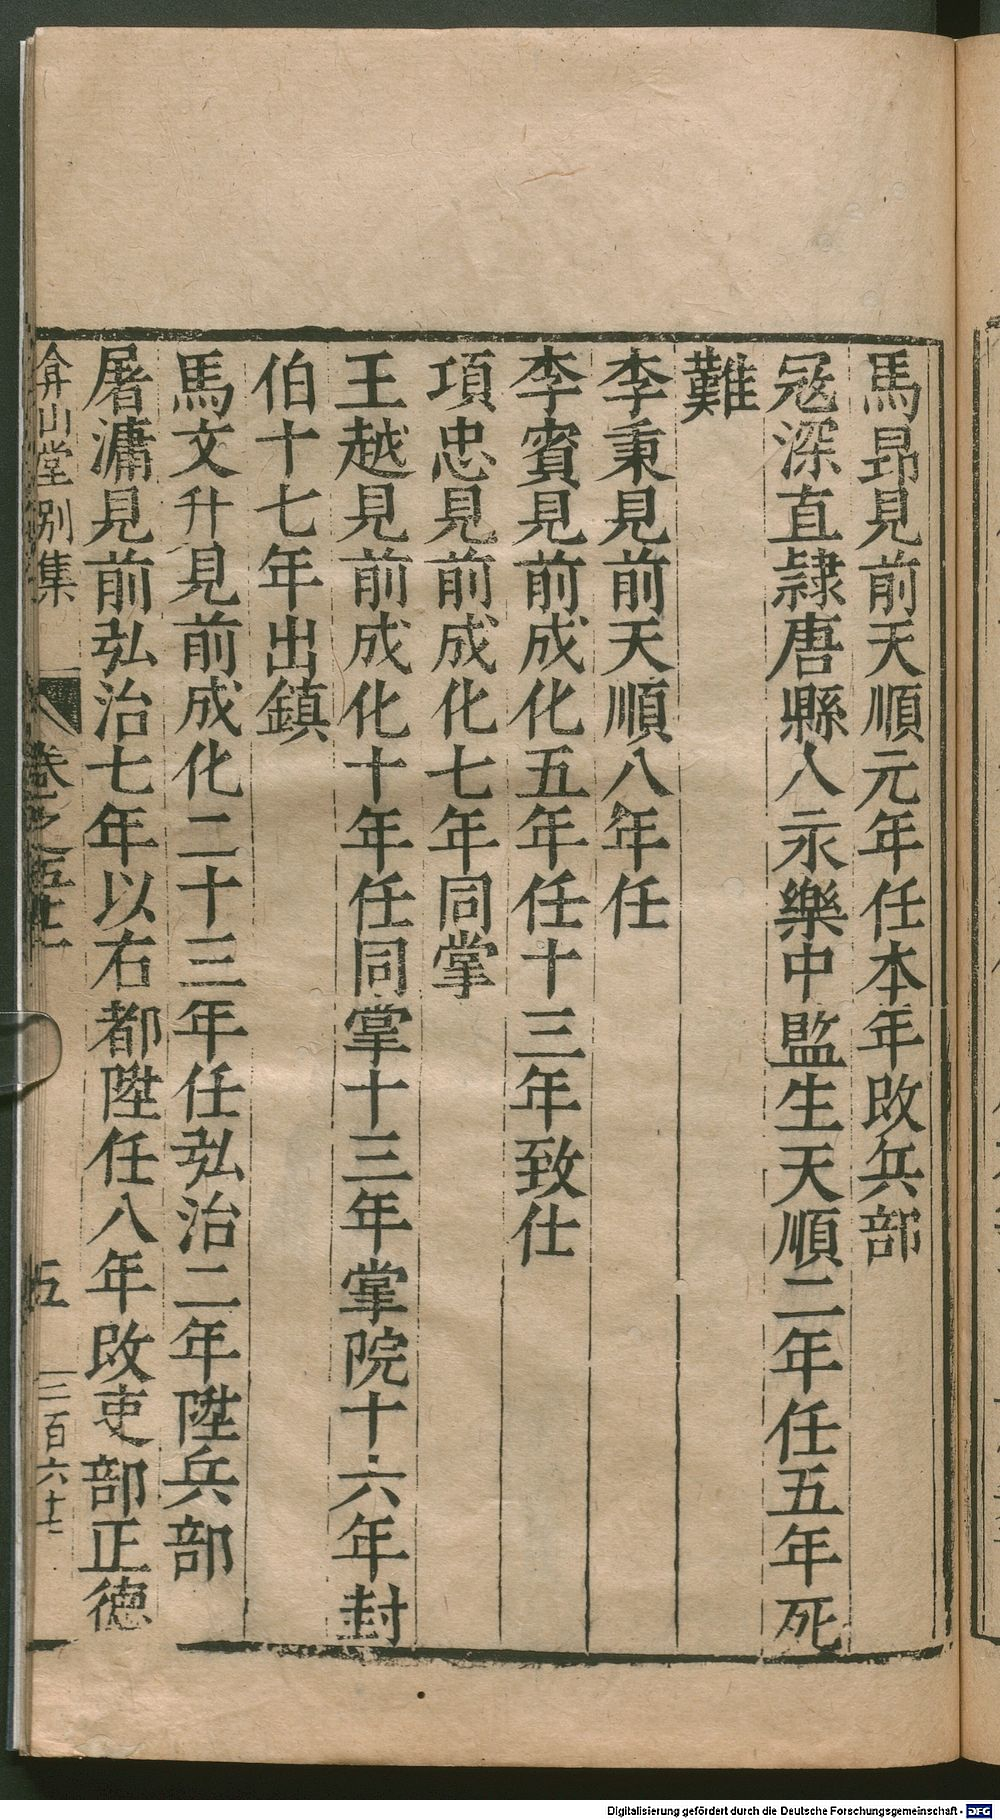 馬昂見前天順元年任本年改兵部
冦深直隷唐縣人永樂中監生天順二年任五年死
難
李秉見前天順八年任
李賓見前成化五年任十三年致仕
項忠見前成化七年同掌
王越見前成化十年任同掌十三年掌院十六年封
伯十七年出鎮
馬文升見前成化二十三年任弘治二年陞兵部
屠滽見前弘治七年以右都陞任八年改吏部正德
弇山堂別集
卷之五十
五
三百六十
Digitalisierung gefördert durch die Deutsche Forschungsgemeinschaft - DFG